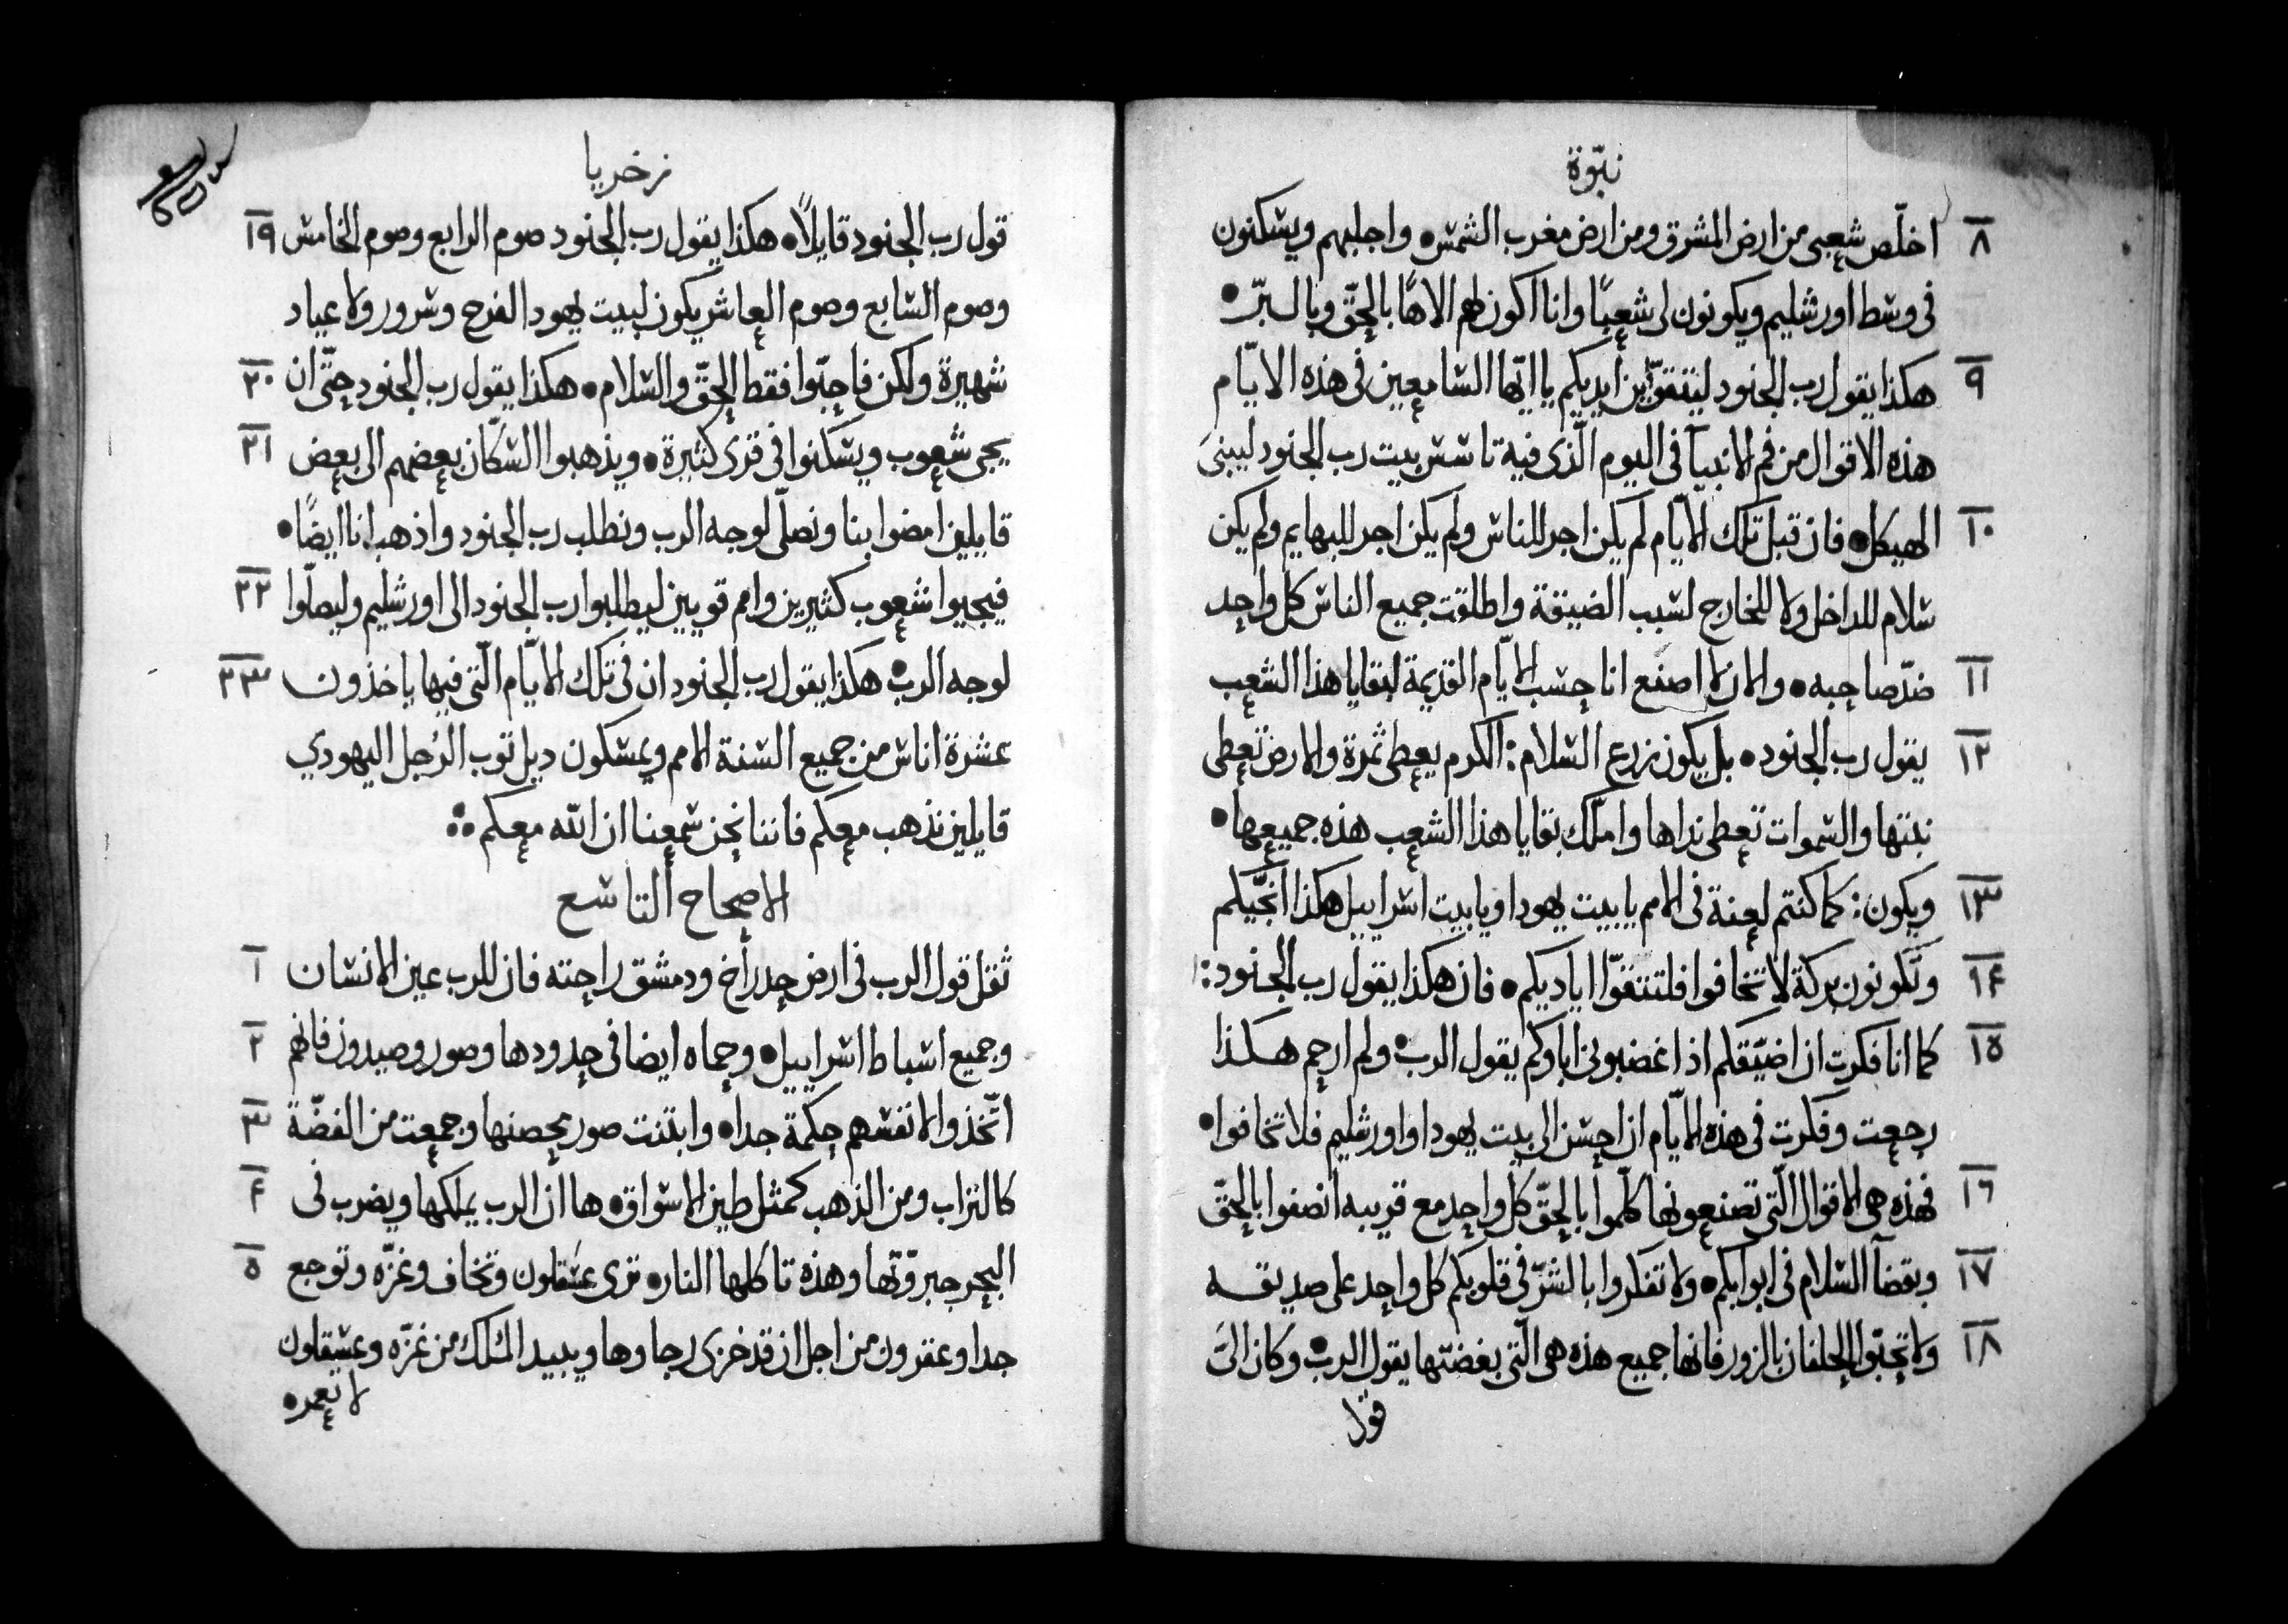 نبوّة
٨ اخلّص شعبى من ارض المشرق ومن ارض مغرب الشمس۰ واجلبهم ويسكنون
فى وسط اورشليم ويكونون لى شعبًا وانا اكون لهم الاهًا بالحقّ وبالبرّ۰
٩ هكذا يقول رب الجنود ليتقوّين ايديكم يا ايّها السامعين فى هذه الايّام
هذه الاقوال من فم الانبيآ فى اليوم الّذى فيه تاسس بيت رب الجنود ليبنىَ
١٠ الهيكل۰ فان قبل تلك الايّام لم يكن اجر للناس ولم يكن اجر للبهايم ولم يكن
سلام للداخل ولا للخارج لسبب الضيقة واطلقت جميع الناس كل واحد
١١ ضدّ صاحبه۰ والان لا اصنع انا حسب الايّام القديمة لبقايا هذا الشعب
١٢ يقول رب الجنود۰ بل يكون زرع السلام: الكرم يعطى ثمرة والارض تعطى
نبتها والسموات تعطى نداها واملّك بقايا هذا الشعب هذه جميعها۰
١٣ ويكون: كما كنتم لعنة فى الامم يا بيت يهودا ويا بيت اسراييل هكذا انجّيكم
١۴ وتكونون بركة لا تخافوا فلتتقوّا اياديكم۰ فان هكذا يقول رب الجنود:
١٥ كما انا فكرت ان اضيّقكم اذ اغضبونى اباوكم يقول الرب۰ ولم ارحم هكذا
رجعت وفكرت فى هذه الايّام ان احسن الى بيت يهودا واورشليم فلا تخافوا۰
١٦ فهذه هى الاقوال الّتى تصنعونها كلّموا بالحقّ كل واحد مع قريبه انصفوا بالحقّ
١٧ وبقضآ السلام فى ابوابكم۰ ولا تفكروا بالشرّ فى قلوبكم كل واحد على صديقه
١٨ ولا تحبّوا الحلفان بالزور فانها جميع هذه هى الّتى بغضتها يقول الرب۰ وكان الىّ
قول
زخريا
قول رب الجنود قايلاً۰ هكذا يقول رب الجنود صوم الرابع وصوم الخامس ١٩
وصوم السابع وصوم العاشر يكون لبيت يهودا لفرح وسرور ولاعياد
شهيرة ولكن فاحبّوا فقط الحقّ والسلام۰ هكذا يقول رب الجنود حتّى ان ٢٠
يجى شعوب ويسكنوا فى قرى كثيرة۰ ويذهبوا السكّان بعضهم الى بعض ٢١
قايلين امضوا بنا ونصلّى لوجه الرب ونطلب رب الجنود واذهب انا ايضًا۰
فيجيوا شعوب كثيرين وامم قويين ليطلبوا رب الجنود الى اورشليم وليصلّوا ٢٢
لوجه الرب۰ هكذا يقول رب الجنود ان فى تلك الايّام الّتى فيها ياخذون ٢٣
عشرة اناس من جميع السنة الامم ويمسكون ديل توب الرجل اليهودي
قايلين نذهب معكم فاننا نحن سمعنا ان اللّه معكم
الاصحاح التاسع
ثقل قول الرب فى ارض حدراخ ودمشق راحته فان للرب عين الانسان ١
وجميع اسباط اسراييل۰ وحماه ايضا فى حدودها وصور وصيدون فانهم ٢
اتّخذوا لانفسهم حكمة جدا۰ وابتنت صور بحصنها وجمعت من الفضّة ٣
كالتراب ومن الذهب كمثل طين الاسواق۰ ها ان الرب يملكها ويضرب فى ۴
البحر جبروّتها وهذه تاكلها النار۰ ترى عسقلون وتخاف وغزّه وتوجع ٥
جدا وعقرون من اجل ان قد خزى رجاوها ويبيد الملك من غزّه وعسقلون
لا تعمر۰